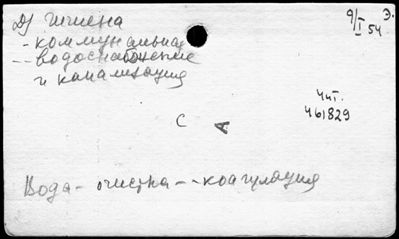 Д) Гигиена
- коммунальная
-- водоснабжение
и канализация
9/I 54 Э.
Чит.
461829
С А
Вода - очистка -- коагуляция